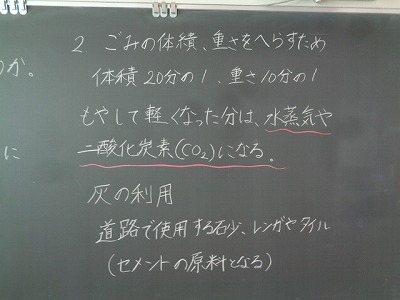 2. ごみの体積、重さをへらすため
体積20分の1、重さ10分の1
か。
もやして軽くなった分は、水蒸気や
に
二酸化炭素(CO2)になる。
灰の利用
道路で使用する砂、レンガやタイル
(セメントの原料となる)